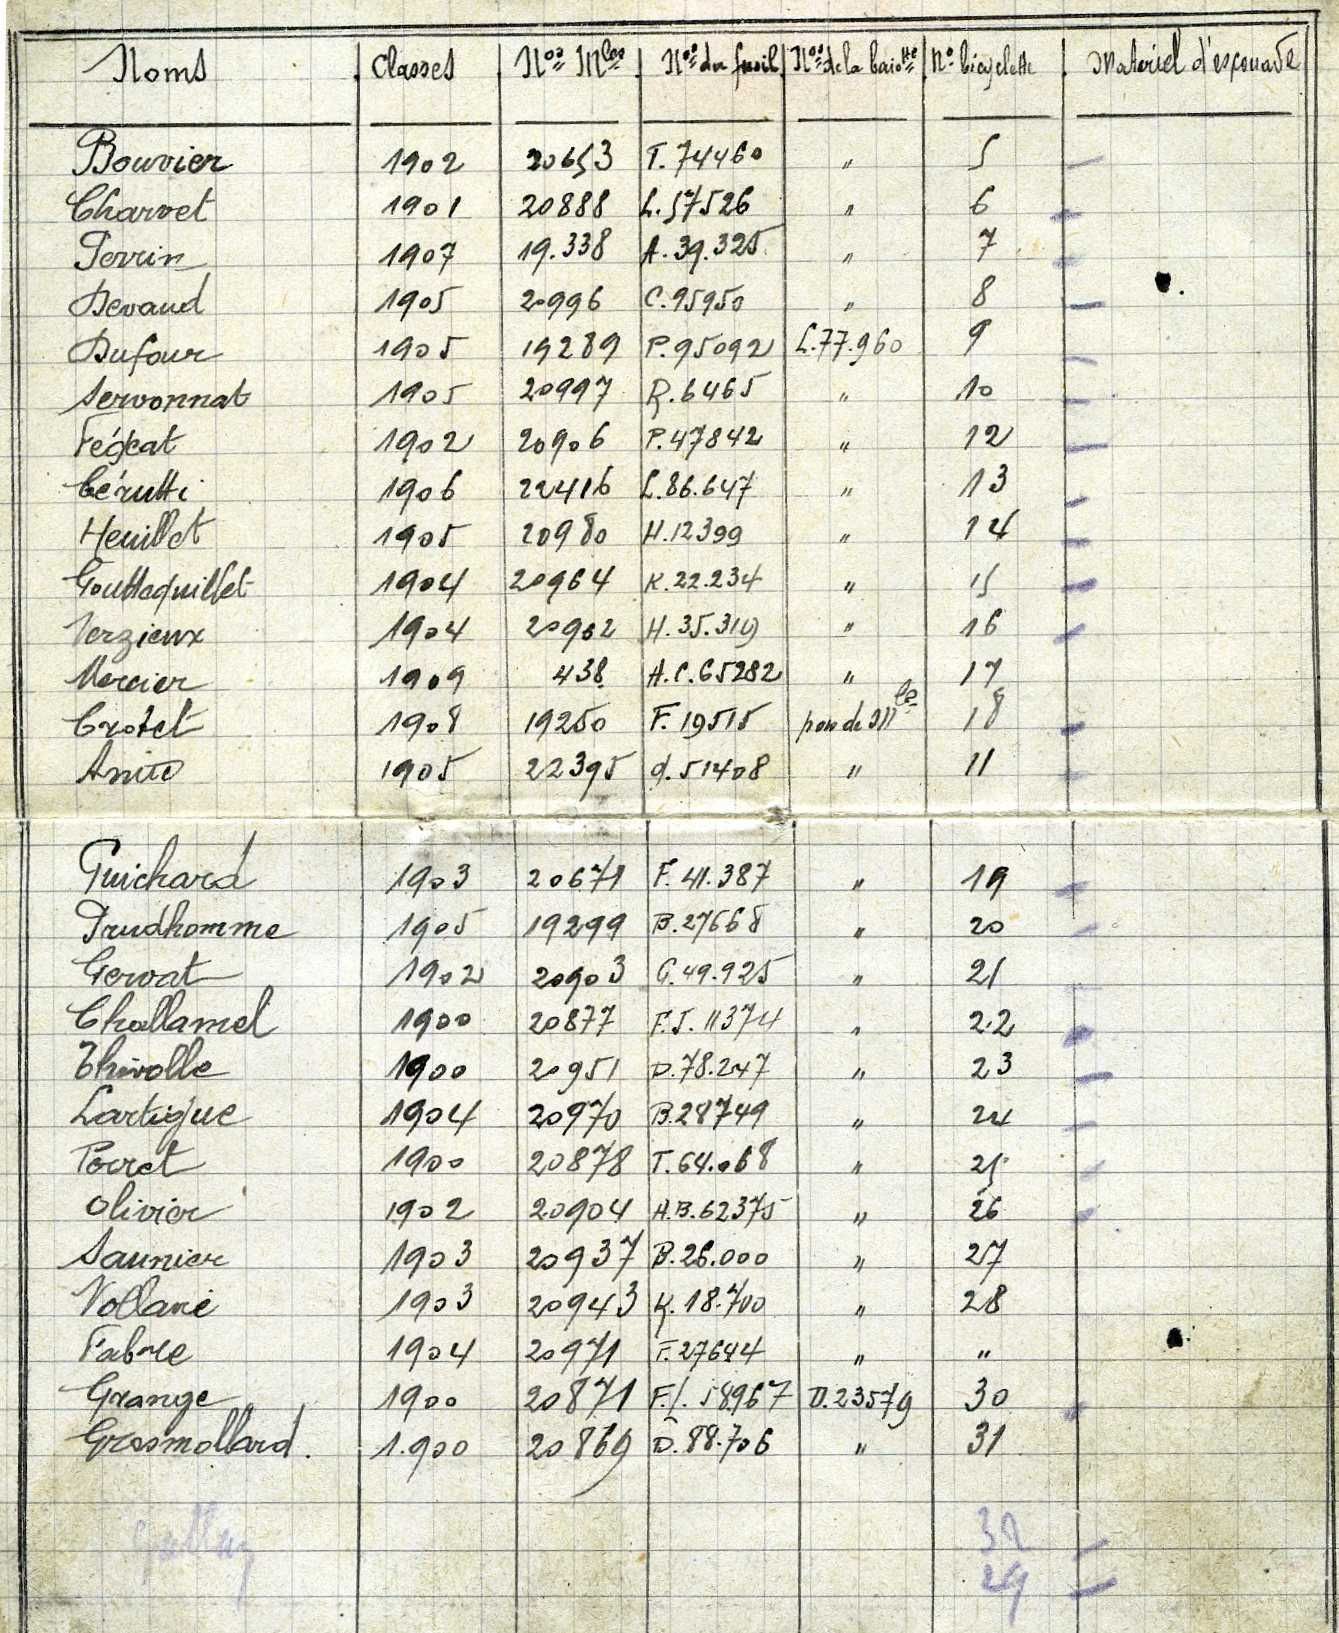 Noms Classes Nos Mles Nos du fusil Nos de la baiotte No bicyclette Matériel d'escouade
Bouvier 1902 20653 T. 74460 " 5
Charvet 1901 20888 L. 57526 " 6
Perrin 1907 19.338 A. 39.325 " 7
Devaud 1905 20996 C. 95950 " 8
Dufour 1905 19289 P. 95092 L. 77.960 9
Servonnat 1905 20997 R. 6465 " 10
Fégeat 1902 20906 P. 47842 " 12
Cérutti 1906 22416 L. 86.647 " 13
Heuillet 1905 20980 H. 12399 " 14
Gouttaquillet 1904 20964 K. 22.234 " 15
Verzieux 1904 20902 H. 35.319 " 16
Mercier 1909 438 A.C. 65282 " 17
Crotet 1908 19250 F. 19515 pas de Mle 18
1905 22395 51408 " 11
Guichard 1903 20671 F. 41.387 " 19
Prudhomme 1905 19299 B. 27668 " 20
Gervat 1902 20903 G. 49.925 " 21
Challamel 1900 20877 F.J. 11374 " 22
Thivolle 1900 20951 D. 78.247 " 23
Lartigue 1904 20970 B. 28749 " 24
Porret 1900 20878 T. 64.068 " 25
Olivier 1902 20904 H.B. 62375 " 26
Saunier 1903 20937 B. 26.000 " 27
Vollane 1903 20943 K. 18.700 " 28
Fabre 1904 20971 T. 27644 " "
Grange 1900 20871 58967 D. 23579 30
Grosmollard. 1.900 20869 D. 88.706 " 31
32
29